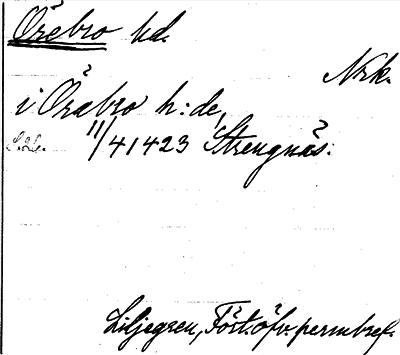 Örebro hd.
Nrk.
i Örebro h:de,
11/4 1423 Strengnäs.
Liljegren, Fört. öfv. permbref.